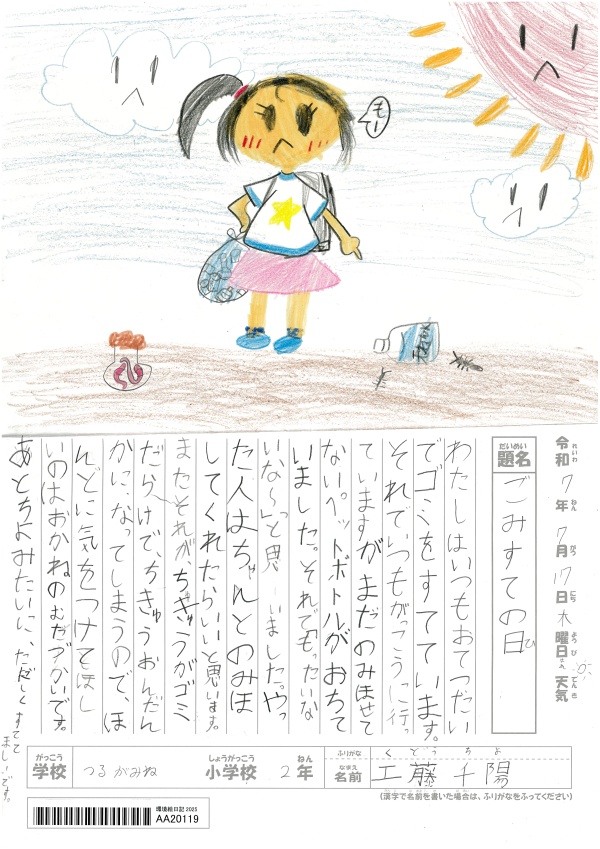 もー
令和7年7月17日木曜日 天気
れいわ ねん がつ にち ようび てんき
だいめい
題名
ごみすての日
ひ
わたしはいつもおてつだい
でゴミをすてています。
それでいつもがっこうに行っ
ていますがまだのみほせて
ないペットボトルがおちて
いました。それで「もったいな
いな〜」っと思いました。やっ
た人はちゃんとのみほ
してくれたらいいと思います。
またそれが、ちきゅうがゴミ
だらけで、ちきゅうおんだん
かに、なってしまうので、ほ
んとに気をつけてほし
いのはおかねのむだづかいです。
あとちよみたいに、ただしく すてて
ましいです。
がっこう
学校
つるがみね
しょうがっこう
小学校
2年
ねん
ふりがな
くどうちよ
なまえ
名前
工藤千陽
(漢字で名前を書いた場合は、ふりがなをふってください)
環境絵日記 2025
AA20119